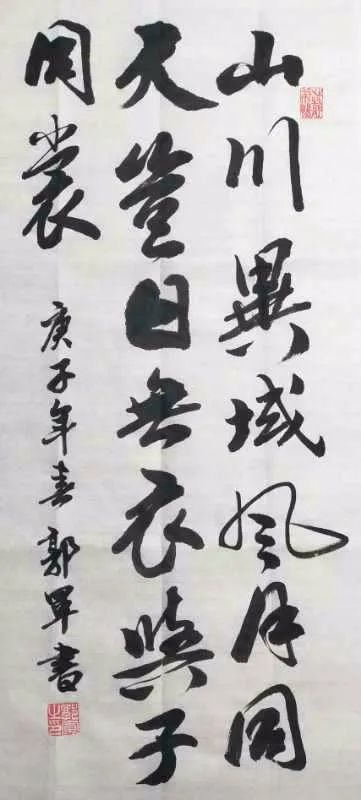 山川異域風月同
天豈曰無衣與子
同裳
庚子年春郭軍書